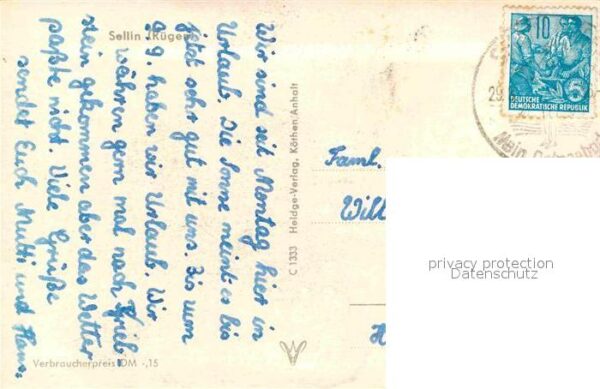 Sellin (Rügen)
Wir sind seit Montag hier in
Urlaub. Die Sonne meint es bis
jetzt sehr gut mit uns. Bis zum
9.9. haben wir Urlaub. Wir
währen gern mal nach
stein gekommen aber das Wetter
paßte nicht. Viele Grüße
sendet Euch Mutti und Hans.
Verbraucherpreis DM -,15
C 1333 Heldge-Verlag, Köthen-Anhalt
10
5
DEUTSCHE
DEMOKRATISCHE REPUBLIK
29.
Mein
Faml.
Will
H
privacy protection
Datenschutz